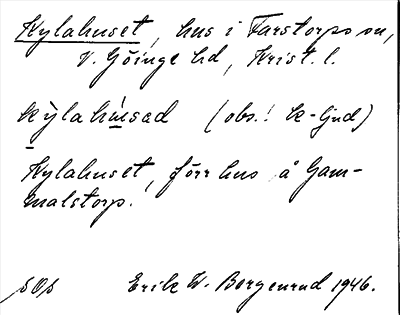 Kylahuset, hus i Farstorps sn,
V. Göinge hd, Krist. l.
kỳlahúsad (obs.! k-ljud)
Kylahuset, förr hus å Gam-
malstorp.
sOs Erik W. Bergenrud 1946.